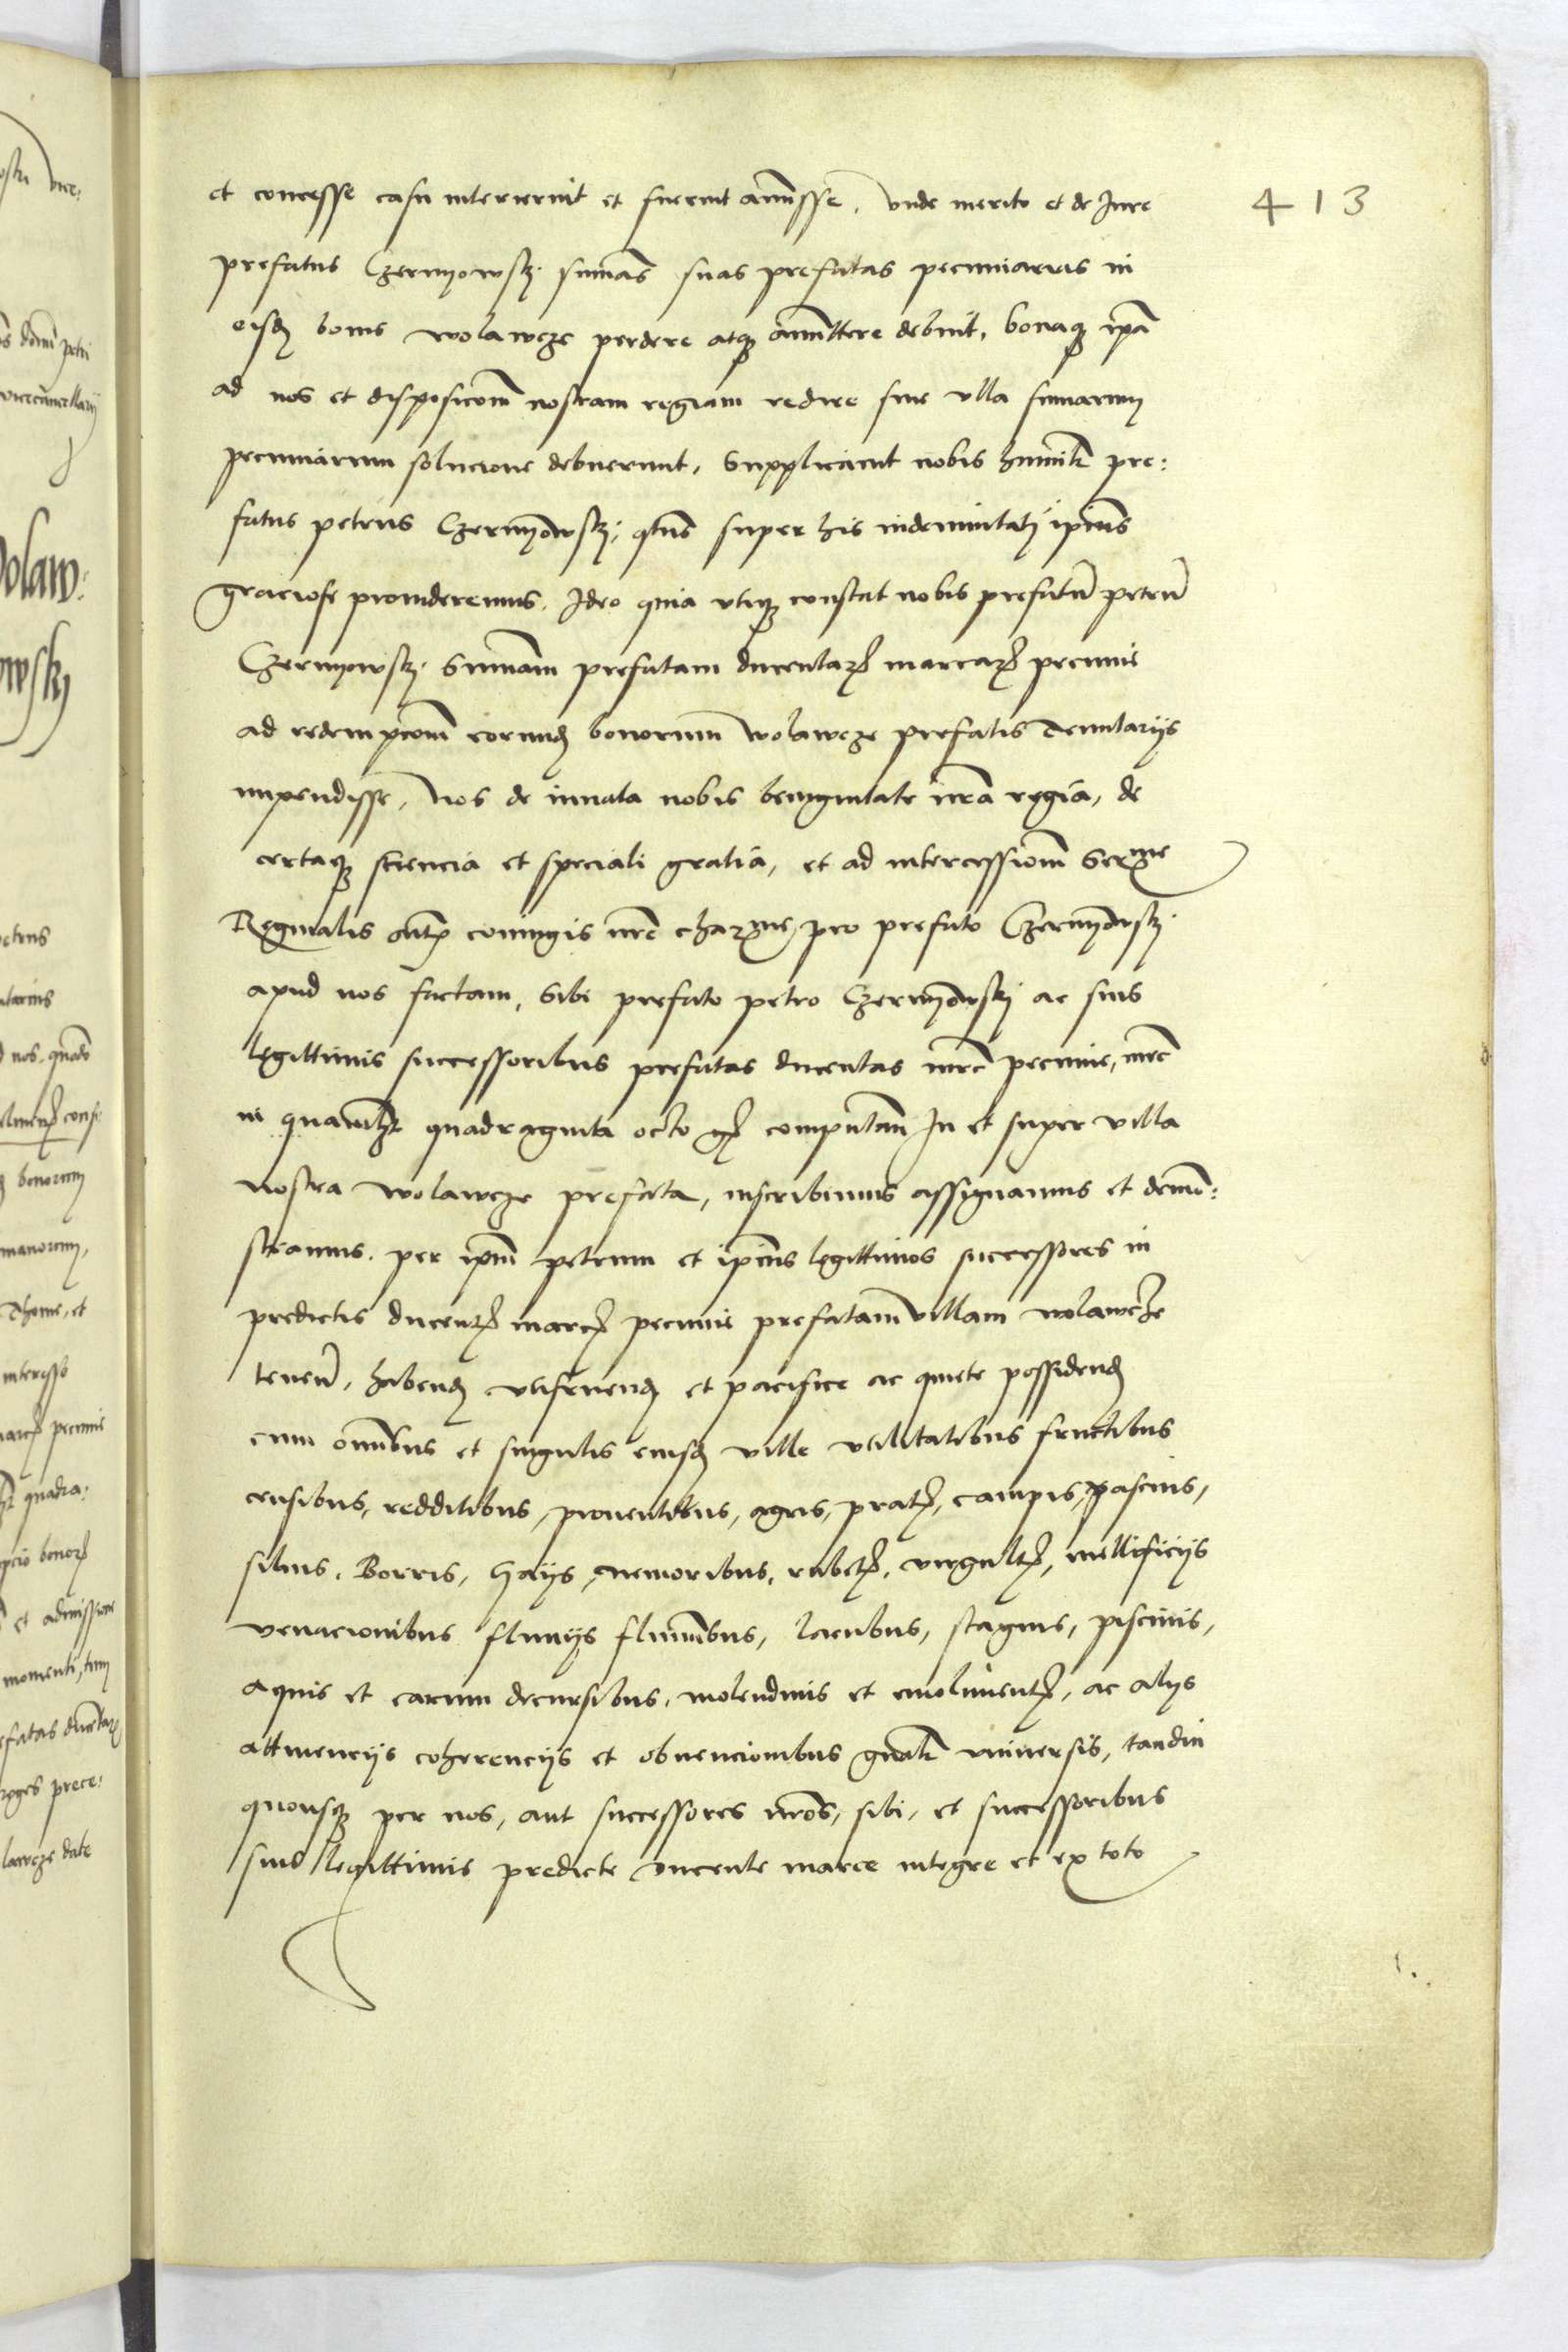 413
et concesse casu interierint et fuerint amisse. Vnde merito et de Iure
prefatus Czermyowskj. sumas suas prefatas pecuniarias in
eisd bonis wolawcze perdere atq amittere debuit, bonaq ipa
ad nos et disposicom nostram regiam redire sine vlla sumarum
pecuniarum solucione debuerunt, Supplicauit nobis humilt pre:
fatus petrus Czermyowskj, qtus super his indemnitatj ipius
graciose prouideremus. Ideo quia vtiq constat nobis prefatu petru
Czermyowskj. Sumam prefatam ducentar marcar pecunie
ad redempcom eorund bonorum wolawcze prefatis Tenutarijs
impendisse, Nos de innata nobis benignitate nra regia, de
certaq sciencia et speciali gratia, et ad intercessiom Serme
Reginalis coniugis nre charme, pro prefato Czermyowskj
apud nos factam, Sibi prefato petro Czermyowskj ac suis
legittimis successoribus prefatas ducentas mrc pecunie, mrc
in quamlbt quadraginta octo gr computan In et super villa
nostra wolawcze prefata, inscribimus assignamus et demon:
stramus. per ipm petrum et ipius legittimos successores in
predictis ducent marc pecunie prefatam villam wolawcze
tenen, habend vtifruend et pacifice ac quiete possidend
cum omibus et singulis eiusd ville vtilitatibus fructibus
censibus, redditibus, prouentibus, agris, prat, campis, pascuis,
siluis, Borris, Gaijs, nemoribus, rubet, virgult, mellificijs
venacionibus fluuijs fluminibus, lacubus, stagnis, piscinis,
aquis et earum decursibus, molendinis et emoliment, ac alijs
attinencijs coherencijs et obuencionibus gnalt vniuersis, tamdiu
quousq per nos, aut successores nros, sibi, et successoribus
suis legittimis predicte ducente marce integre et ex toto